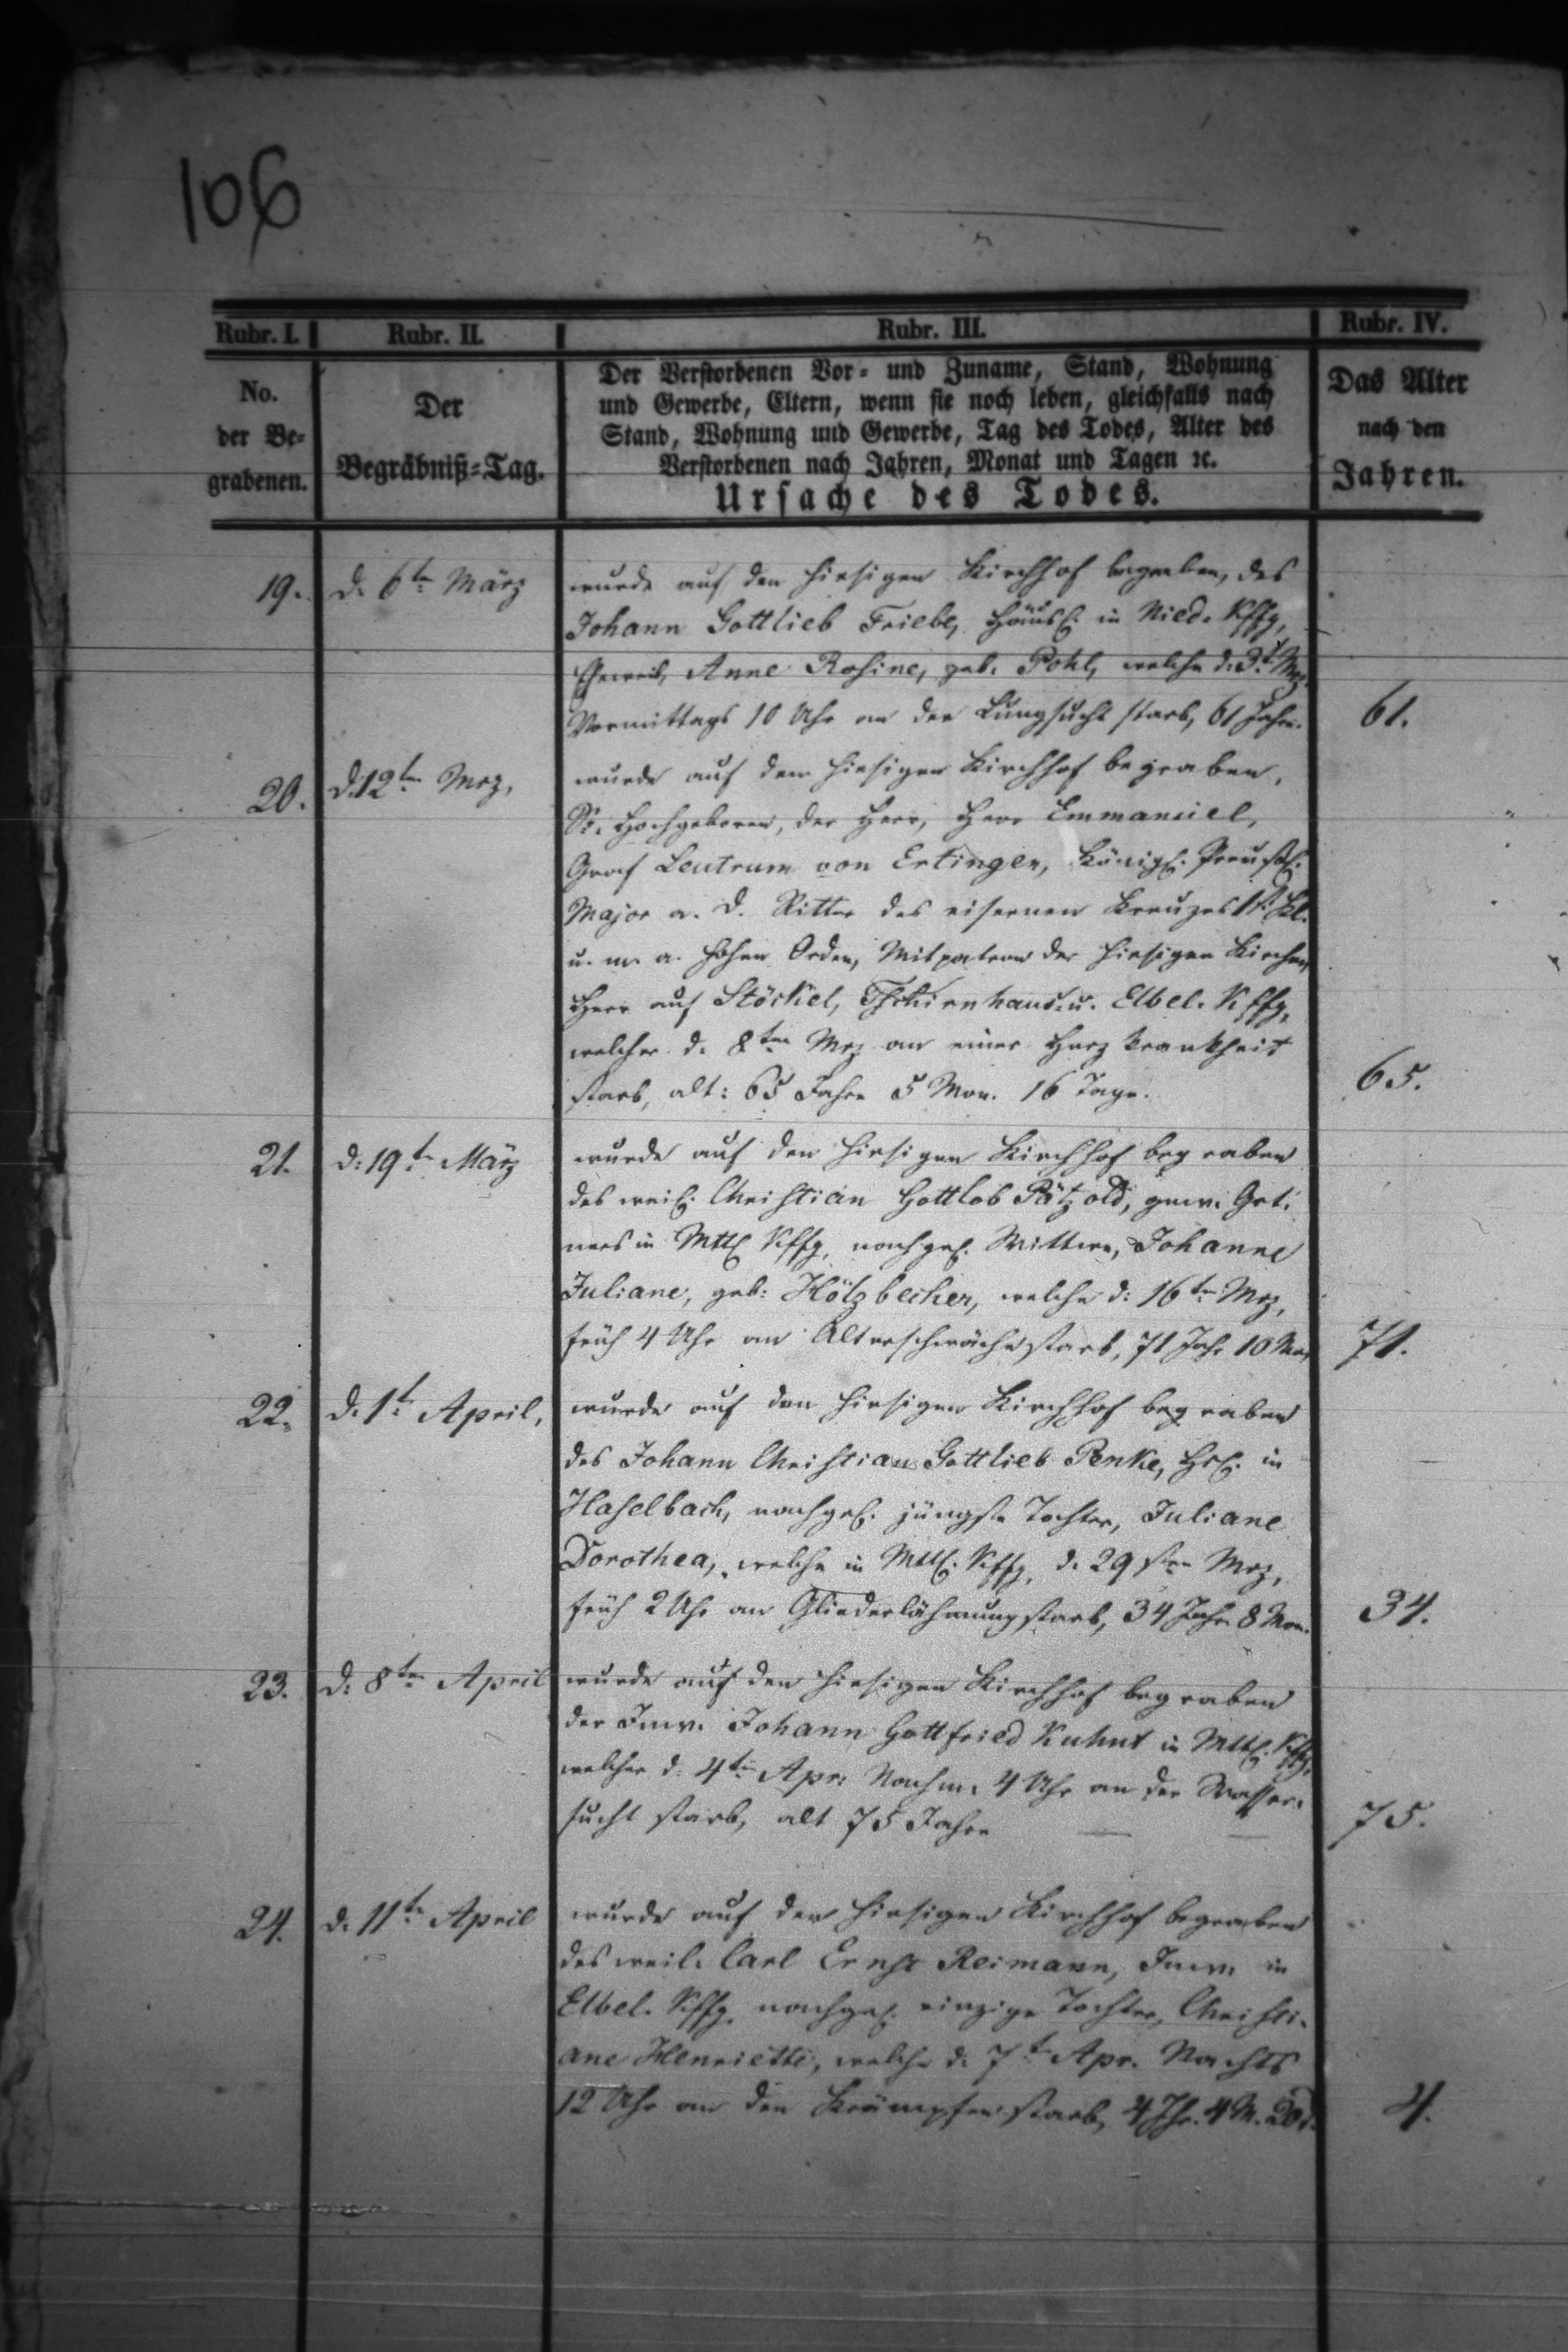 106
Rubr. I. Rubr. II. Rubr. III. Rubr. IV.
No. der Begrabenen.
Der Begräbniß=Tag.
Der Verstorbenen Vor= und Zuname, Stand, Wohnung
und Gewerbe, Eltern, wenn sie noch leben, gleichfalls nach
Stand, Wohnung und Gewerbe, Tag des Todes, Alter des
Verstorbenen nach Jahren, Monat und Tagen ꝛc.
Ursache des Todes.
Das Alter nach den Jahren.
19. d. 6t März wurde auf den hiesigen Kirchhof begraben, des
Johann Gottlieb Friebe, Häusl. in Nied. Kffg,
Eheweib, Anne Rosine, geb. Pohl, welche d. 3t Mrz.
Vormittags 10 Uhr an der Lungsucht starb, 61 Jahre. 61.
20. d. 12ten Mrz, wurde auf dem hiesigen Kirchhof begraben,
Sr. Hochgeboren, der Herr, Herr Emmanuel,
Graf Leutrum von Ertingen, Königl. Preußl.
Major a. D. Ritter des eisernen Kreuzes 1r. Kl.
u. m. a. hohen Orden, Mitpatron der hiesigen Kirchen,
Herr auf Stöckel, Tschirnhaus u. Elbel. Kffg,
welcher d. 8ten Mrz an einer Herzkrankheit
starb, alt: 65 Jahre 5 Mon. 16 Tage. 65.
21. d: 19t März wurde auf den hiesigen Kirchhof begraben
des weil. Christian Gottlob Pätzold, gew. Gärt-
ners in Mttl Kffg, nachgel. Wittwe, Johanne
Juliane, geb: Hölzbecher, welche d: 16ten Mrz,
früh 4 Uhr an Altersschwäche starb, 71 Jahr 10 Mon. 71.
22. d. 1t April, wurde auf den hiesigen Kirchhof begraben
des Johann Christian Gottlieb Penke, Hsl. in
Haselbach, nachgel. jüngste Tochter, Juliane
Dorothea, welche in Mttl. Kffg, d. 29sten Mrz,
früh 2 Uhr an Gliederlähmung starb, 34 Jahr 8 Mon. 34.
23. d: 8ten April wurde auf den hiesigen Kirchhof begraben
der Inw. Johann Gottfried Kuhnt in Mttl. Kffg,
welcher d: 4ten Apr: Nachm. 4 Uhr an der Wasser-
sucht starb, alt 75 Jahre 75.
24. d. 11t April wurde auf den hiesigen Kirchhof begraben
des weil. Carl Ernst Reimann, Inw. in
Elbel. Kffg, nachgel. einzige Tochter, Christi-
ane Henriette, welche d. 7t Apr. Nachts
12 Uhr an den Krämpfen starb, 4 Jhr. 4 M. 20 t. 4.